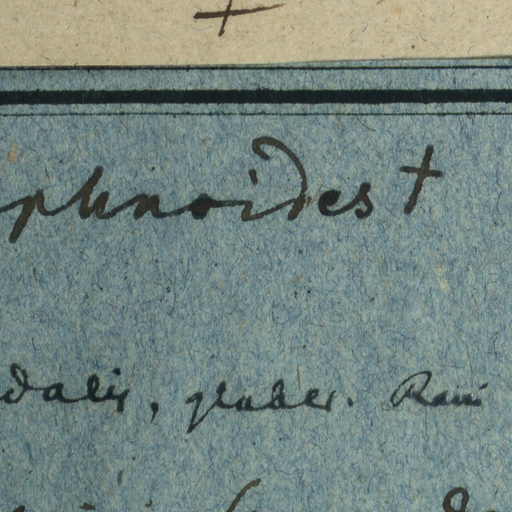 +
phnoides †
dalis, glaber. Rami